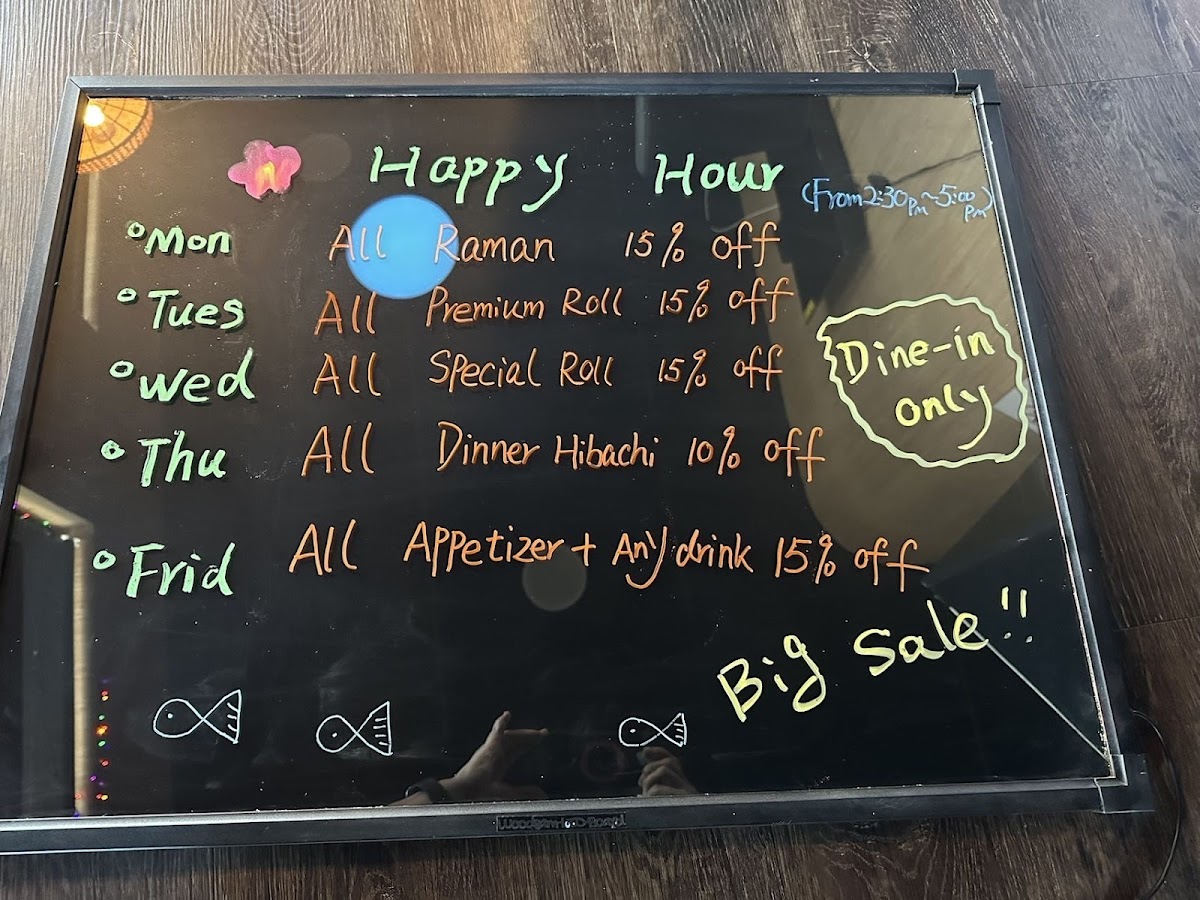 Happy Hour (From 2:30pm~5:00pm)
Mon All Raman 15% off
Tues All Premium Roll 15% off
Wed All Special Roll 15% off
Dine-in
only
Thu All Dinner Hibachi 10% off
Frid All Appetizer + Any drink 15% off
Big Sale!!